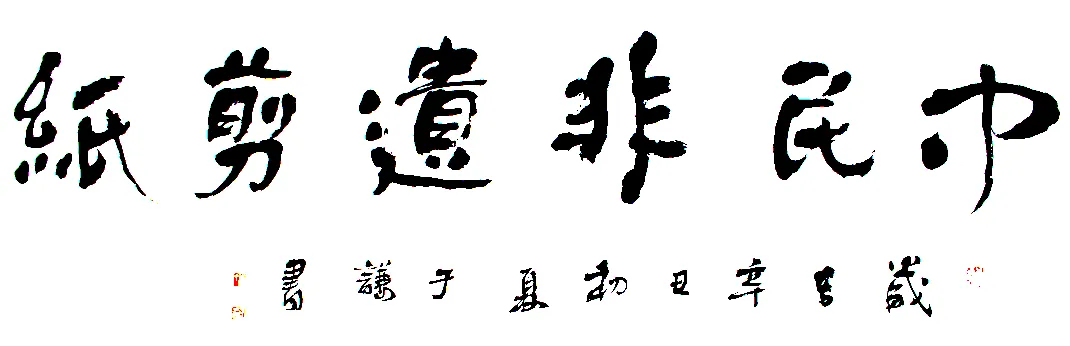 巾民非遺剪紙
歲吉辛丑初夏于謙書